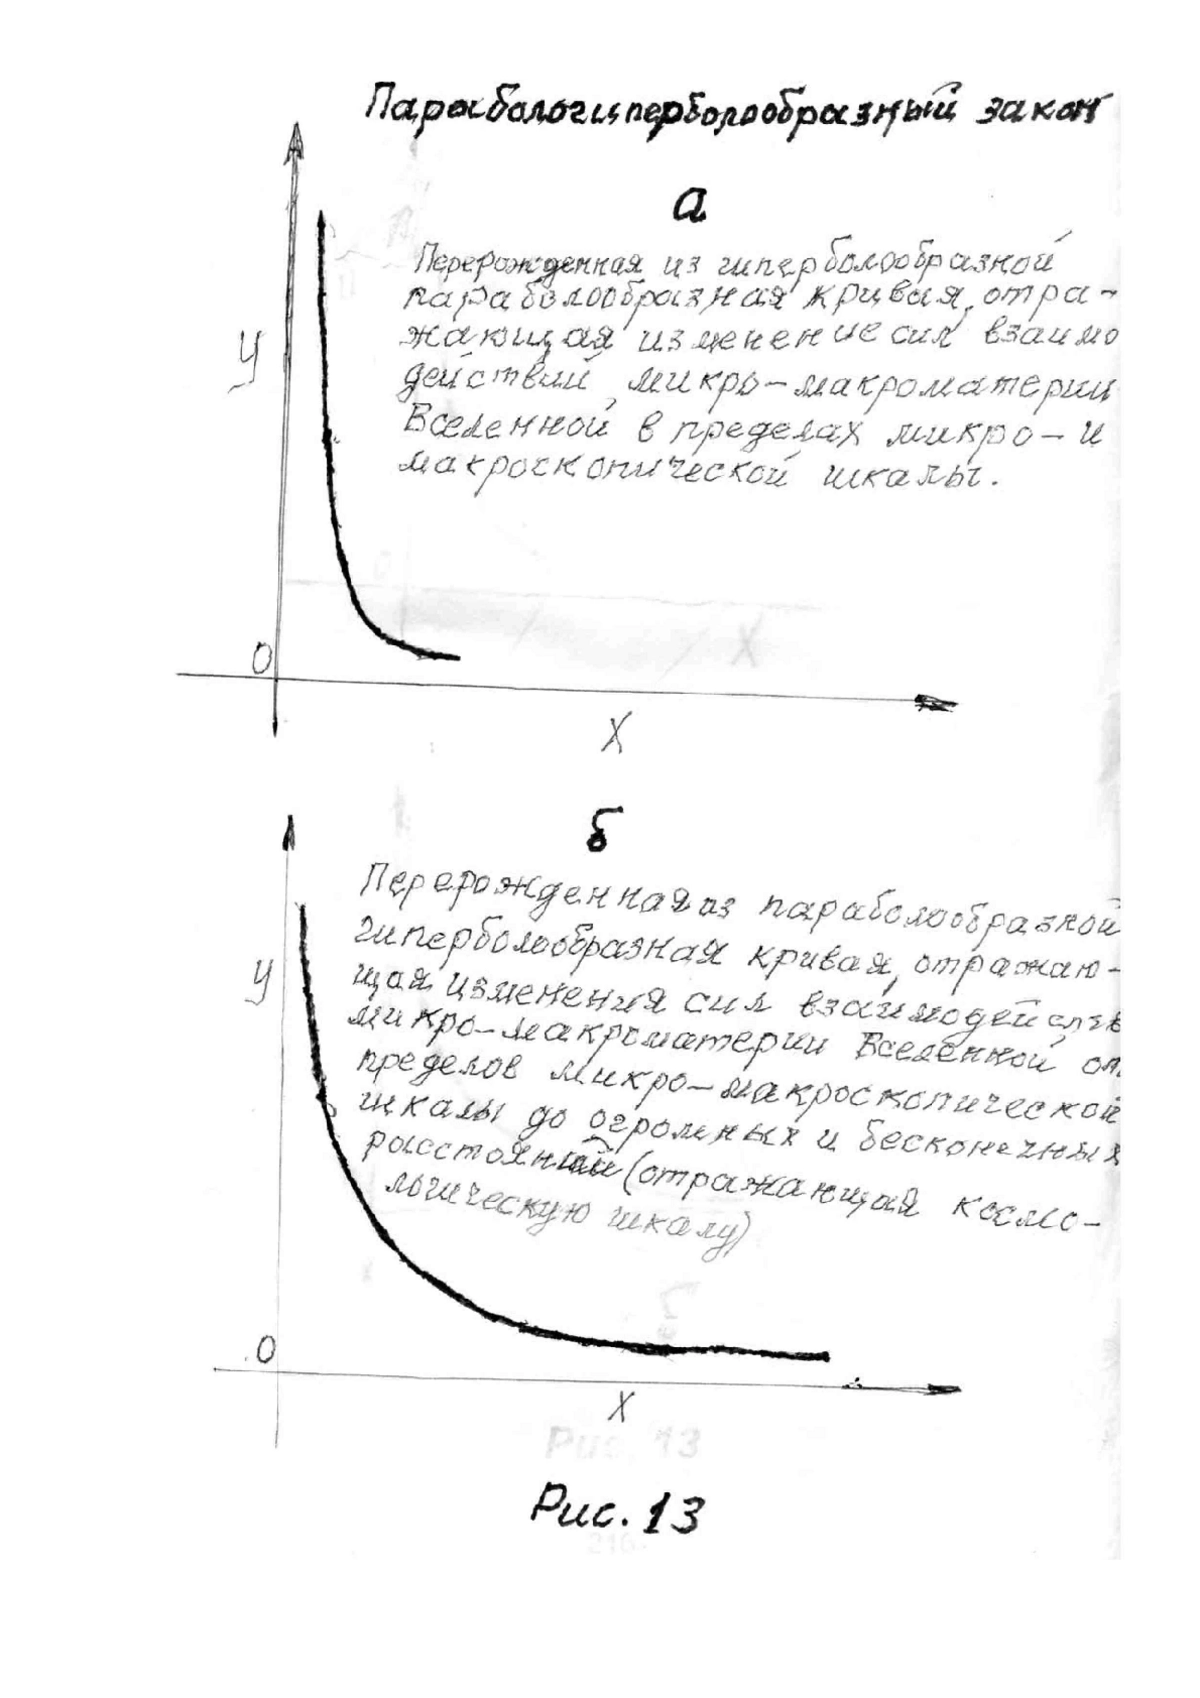 Парабологиперболообразный закон
а
Перерожденная из гиперболообразной
параболообразная кривая, отра-
жающая изменение сил взаимо
действий микро-макроматерии
Вселенной в пределах микро- и
макроскопической шкалы.
У
0
X
б
Перерожденная из параболообразной
гиперболообразная кривая, отражаю-
щая изменения сил взаимодейств
микро-макроматерии Вселенной от
пределов микро-макроскопической
шкалы до огромных и бесконечных
расстояний (отражающая космо-
логическую шкалу)
У
0
X
Рис. 13
Рис. 13